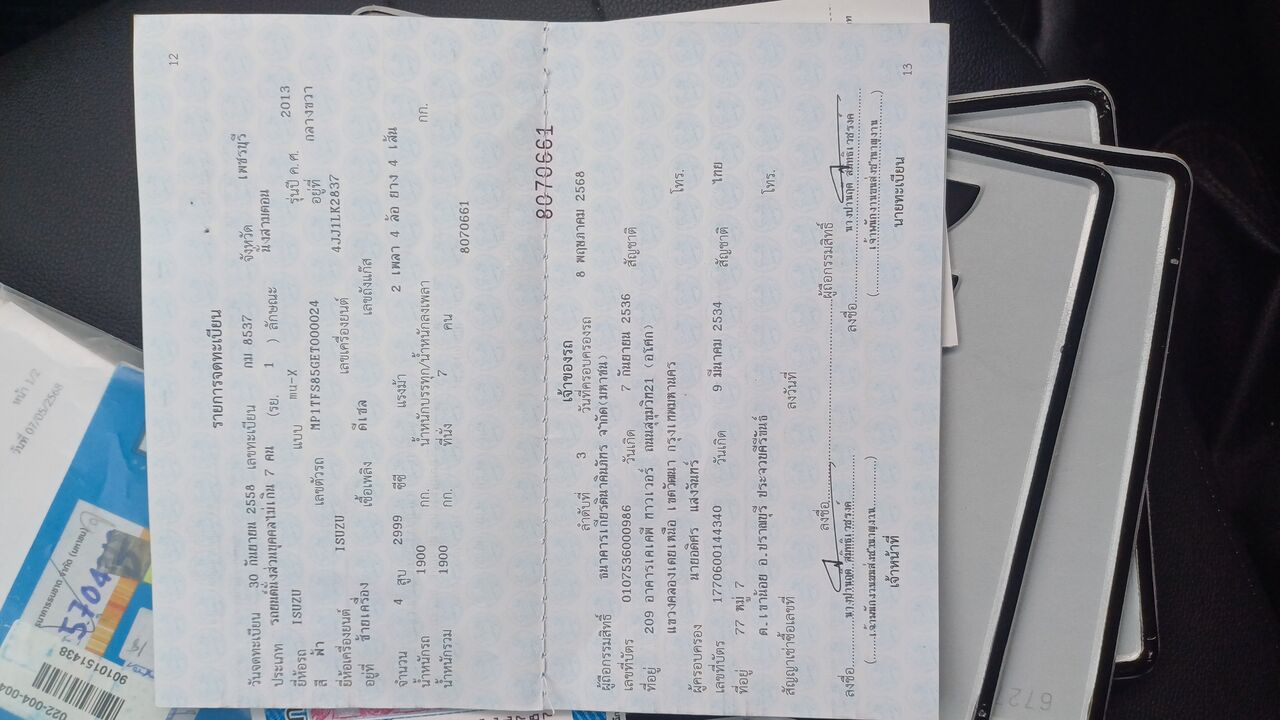 12
รายการจดทะเบียน
วันจดทะเบียน 30 กันยายน 2558 เลขทะเบียน กม 8537 จังหวัด เพชรบุรี
ประเภท รถยนต์นั่งส่วนบุคคลไม่เกิน 7 คน (รย. 1 ) ลักษณะ นั่งสามตอน
ยี่ห้อรถ ISUZU แบบ mu-X รุ่นปี ค.ศ. 2013
สี ฟ้า เลขตัวรถ MP1TFS85GET000024 อยู่ที่ กลางขวา
ยี่ห้อเครื่องยนต์ ISUZU เลขเครื่องยนต์ 4JJ1LK2837
อยู่ที่ ซ้ายเครื่อง เชื้อเพลิง ดีเซล เลขถังแก๊ส
จำนวน 4 สูบ 2999 ซีซี แรงม้า 2 เพลา 4 ล้อ ยาง 4 เส้น
น้ำหนักรถ 1900 กก. น้ำหนักบรรทุก/น้ำหนักลงเพลา กก.
น้ำหนักรวม 1900 กก. ที่นั่ง 7 คน 8070661
8070661
เจ้าของรถ
ลำดับที่ 3 วันที่ครอบครองรถ 8 พฤษภาคม 2568
ผู้ถือกรรมสิทธิ์ ธนาคารเกียรตินาคินภัทร จำกัด(มหาชน)
เลขที่บัตร 0107536000986 วันเกิด 7 กันยายน 2536 สัญชาติ
ที่อยู่ 209 อาคารเคเคพี ทาวเวอร์ ถนนสุขุมวิท21 (อโศก)
แขวงคลองเตยเหนือ เขตวัฒนา กรุงเทพมหานคร โทร.
ผู้ครอบครอง นายอดิศร แสงจันทร์
เลขที่บัตร 1770600144340 วันเกิด 9 มีนาคม 2534 สัญชาติ ไทย
ที่อยู่ 77 หมู่ 7
ต.เขาน้อย อ.ปราณบุรี ประจวบคีรีขันธ์ โทร.
สัญญาเช่าซื้อเลขที่ ลงวันที่
ลงชื่อ ผู้ถือกรรมสิทธิ์
ลงชื่อ ลงชื่อ
(เจ้าพนักงานขนส่งชำนาญงาน) (เจ้าพนักงานขนส่งชำนาญงาน)
เจ้าหน้าที่ นายทะเบียน
13
หน้า 1/2
วันที่ 07/05/2568
5704
9010151438
022-004-004
672